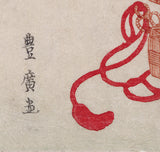 豊廣画